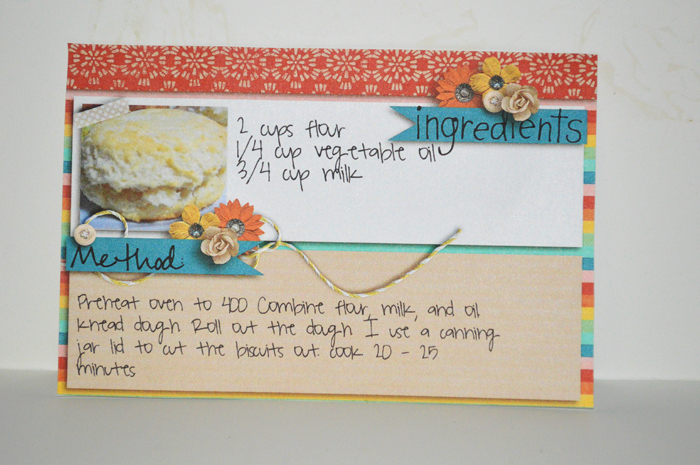 ingredients
2 cups flour
1/4 cup vegetable oil
3/4 cup milk
Method:
Preheat oven to 400 Combine flour, milk, and oil
knead dough Roll out the dough I use a canning
jar lid to cut the biscuits out cook 20 - 25
minutes